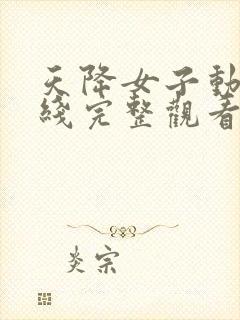 天降女子動
綫完整觀看
炎宗